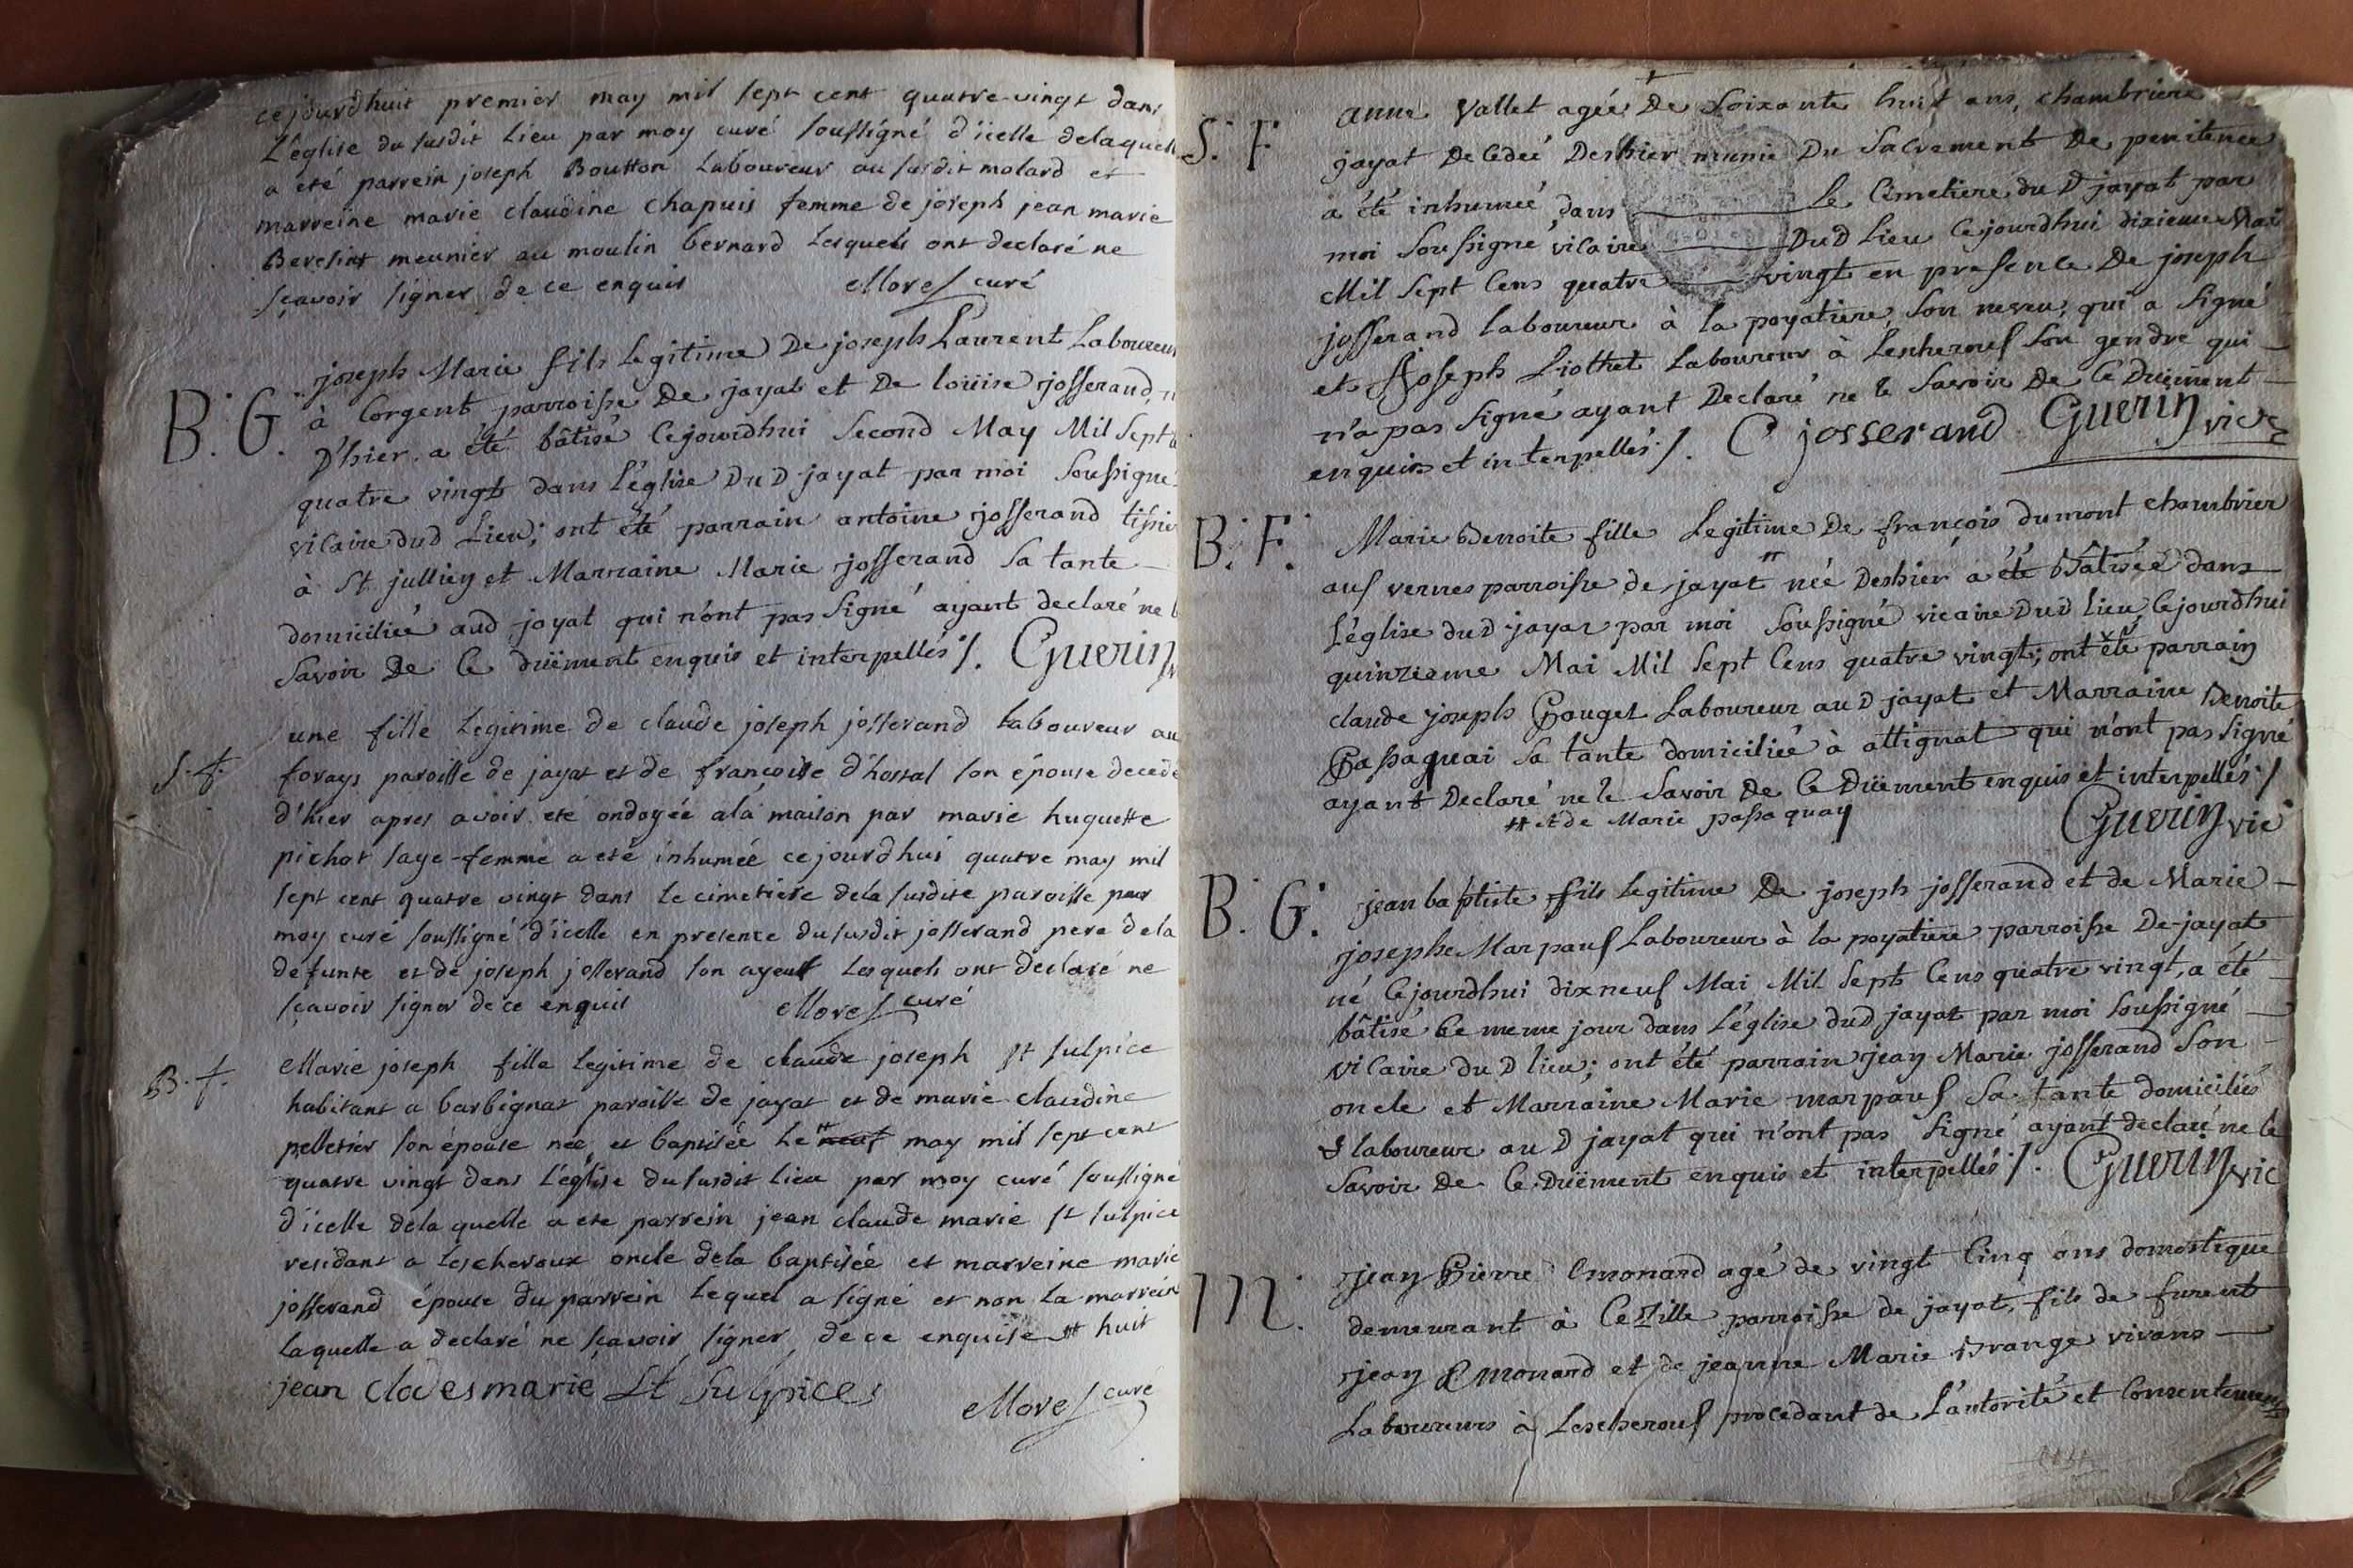 cejourdhuit premier may mil sept cent quatre-vingt dans
L'eglise du susdit lieu par moy curé soussigné d'icelle delaquelle
a eté parrein joseph Boutton Laboureur au susdit molard et
marreine marie claudine chapuis femme de joseph jean marie
meunier au moulin bernard Lesquels ont declaré ne
sçavoir signer de ce enquis Morel curé
B. G. joseph Marie fils Legitime De joseph Laurent Laboureur
à Corgent parroisse De jayat et De loüise josserand, n
D'hier a été bâtisé Cejourdhui Second May Mil Sept
quatre vingt dans L'église DuD jayat par moi Soussigné
vicaire dud Lieu; ont été parrain antoine josserand tissie
à St jullien et Marraine Marie josserand Sa tante
domiciliée aud jayat qui n'ont pas Signé ayant declaré ne l
Savoir De Ce düement enquis et interpellés /. Guerin
S. f. une fille Legitime de claude joseph josserand Laboureur au
forays paroisse de jayat et de francoise d'hostal son épouse decede
d'hier apres avoir eté ondoyée ala maison par marie huguette
pichat sage-femme a eté inhumée cejourdhui quatre may mil
sept cent quatre vingt dans le cimetiere dela susdite paroisse par
moy curé soussigné d'icelle en presence dususdit josserand pere dela
defunte et de joseph josserand son ayeul Lesquels ont declaré ne
sçavoir signer de ce enquis Morel curé
B. f. Marie joseph fille legitime de claude joseph st sulpice
habitant a barbignat paroisse de jayat et de marie claudine
pelletier son épouse née et baptisée Le # neuf may mil sept cent
quatre vingt dans L'église dususdit lieu par moy curé soussigné
d'icelle dela quelle a ete parrein jean claude marie st sulpice
residant a lescheroux oncle dela baptisée et marreine marie
josserand épouse du parrein Lequel a signé et non la marreine
laquelle a declaré ne sçavoir signer de ce enquise # huit
jean cladesmarie St Sulpices
Morel curé
S. F. anne Vallet agée De Soixante huit ans, chambriere
jayat Decedeé Deshier munie Du Sacrement De penitence
a été inhumée dans le Cimetiere du D jayat par
moi Soussigné vicaire DuD Lieu Cejourdhui dixieme Mai
Mil Sept Cens quatre vingt en presence De joseph
josserand laboureur à la poyatiere, Son neveu, qui a Signé
et joseph Laboureur à Lescherous Son gendre qui
n'a pas Signé ayant Declaré ne le Savoir De Ce Düement
enquis et interpellés /. C josserand Guerin vic
B. F. Marie Benoite fille Legitime De françois dumont chambrier
aus vernes parroisse de jayat # née Deshier a été Bâtisée dans
L'église duD jayat par moi Soussigné vicaire DuD lieu Cejourdhui
quinzieme Mai Mil Sept Cens quatre vingt; ont été parrain
claude joseph Gouget Laboureur au D jayat et Marraine Benoite
Passaquai Sa tante domiciliée à attignat qui n'ont pas signé
ayant Declaré ne le Savoir De Ce Düement enquis et interpellés /
# et de Marie passaquay Guerin vic
B. G. jean baptiste fils Legitime De joseph josserand et de Marie
josephe Marpaus Laboureur à la poyatiere parroisse De jayat
né Cejourdhui dixneuf Mai Mil Sept Cens quatre vingt, a été
bâtisé Ce meme jour dans L'église duD jayat par moi Soussigné
vicaire du D lieu; ont été parrain jean Marie josserand Son
oncle et Marraine Marie marpaus Sa tante domiciliés
& laboureur au D jayat qui n'ont pas Signé ayant declaré ne le
Savoir De Ce Düement enquis et interpellés /. Guerin vic
M. jean Pierre Emonard agé de vingt Cinq ans domestique
demeurant à Cezille parroisse de jayat, fils de furent
jean Emonard et de jeanne Marie Brange vivans
Laboureurs à Lescherous procedant de L'autorité et Consentement